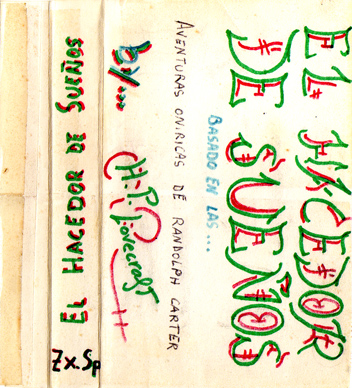 EL HACEDOR
DE SUEÑOS
BASADO EN LAS...
AVENTURAS ONIRICAS DE RANDOLPH CARTER
H.P. Lovecraft
EL HACEDOR DE SUEÑOS
Zx.Sp